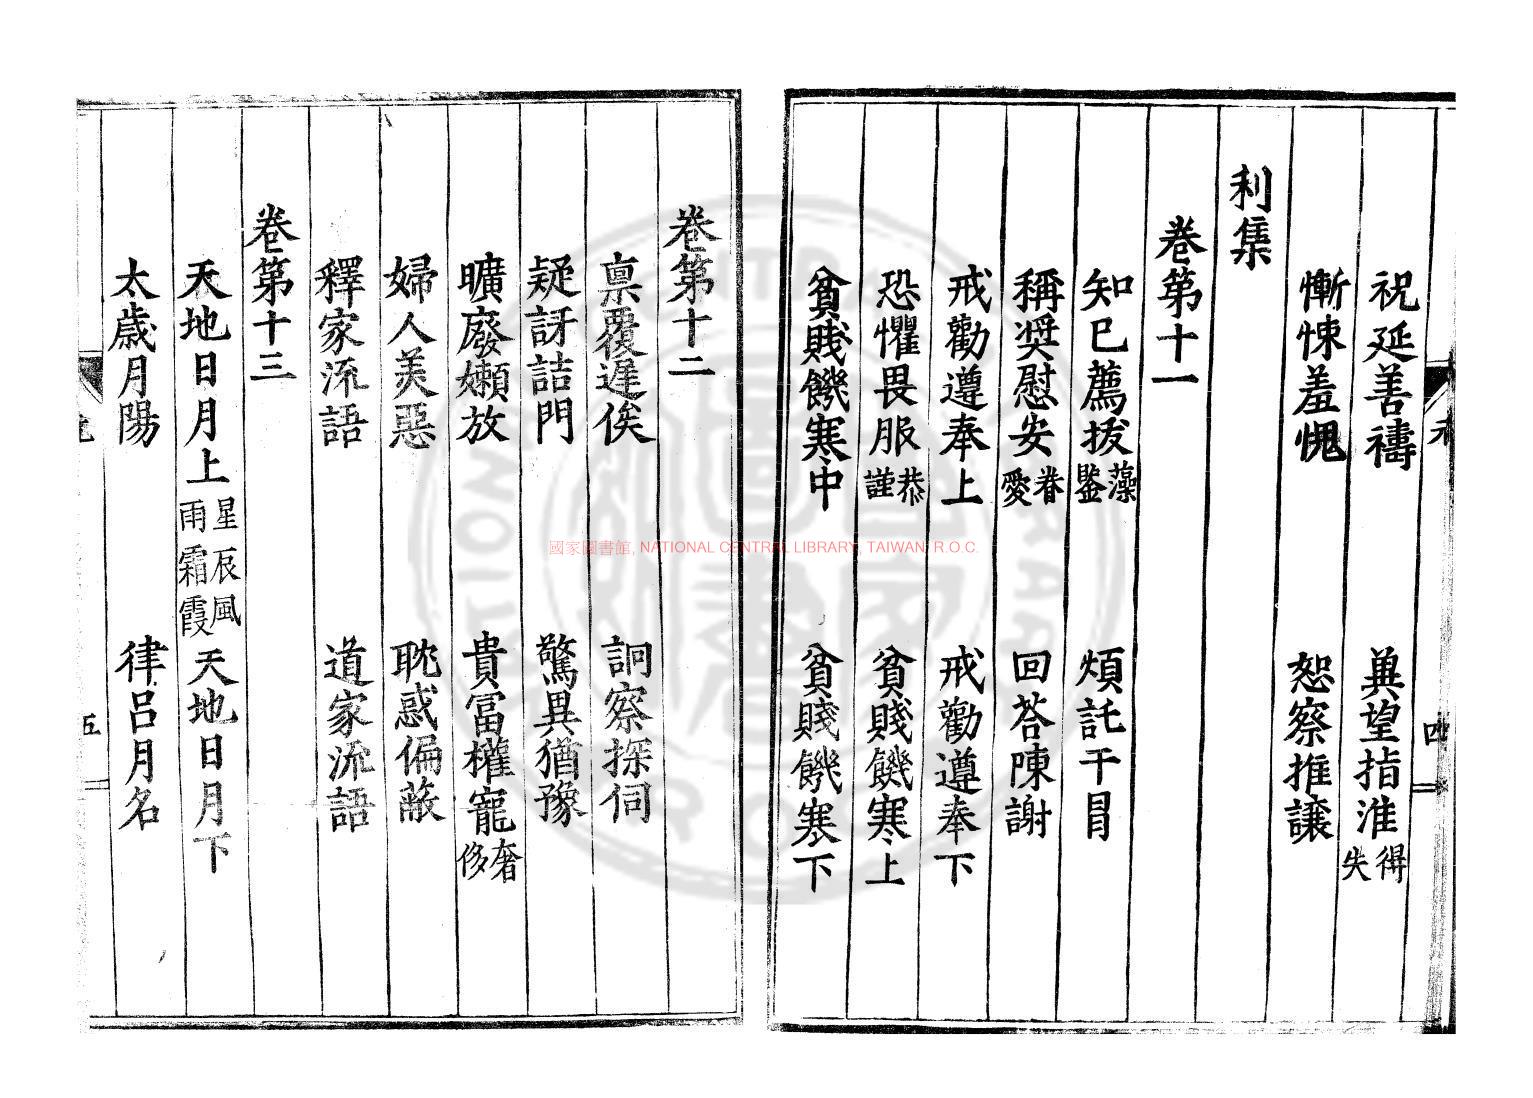 祝延善禱　冀望指准得失
慚悚羞愧　恕察推讓
利集
卷第十一
知己薦拔藻鑒　煩託干冒
稱奨慰安眷愛　回荅陳謝
戒勸遵奉上　戒勸遵奉下
恐懼畏服恭謹　貧賤饑寒上
貧賤饑寒中　貧賤饑寒下
四
卷第十二
禀覆遲俟　詗察探伺
疑訝詰門　驚異猶豫
曠廢嬾放　貴冨權寵奢侈
婦人美惡　耽惑偏蔽
釋家流語　道家流語
卷第十三
天地日月上星辰風雨霜霞　天地日月下
太歲月陽　律呂月名
五
國家圖書館, NATIONAL CENTRAL LIBRARY, TAIWAN, R.O.C.